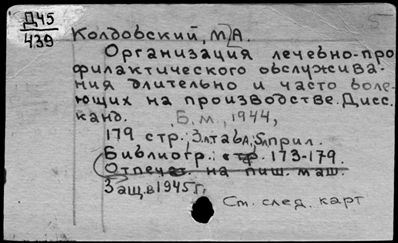 Д45
439
5
Колдовский, М.А.
Организация лечебно-про
филактического обслужива-
ния длительно и часто боле-
ющих на производстве. Дисс.
канд. Б.м., 1944,
179 стр.; 3л.табл.; 5л.прил.
Библиогр.: стр. 173-179.
Отпеч. на пиш. маш.
Защ. в 1945 г.
См. след. карт